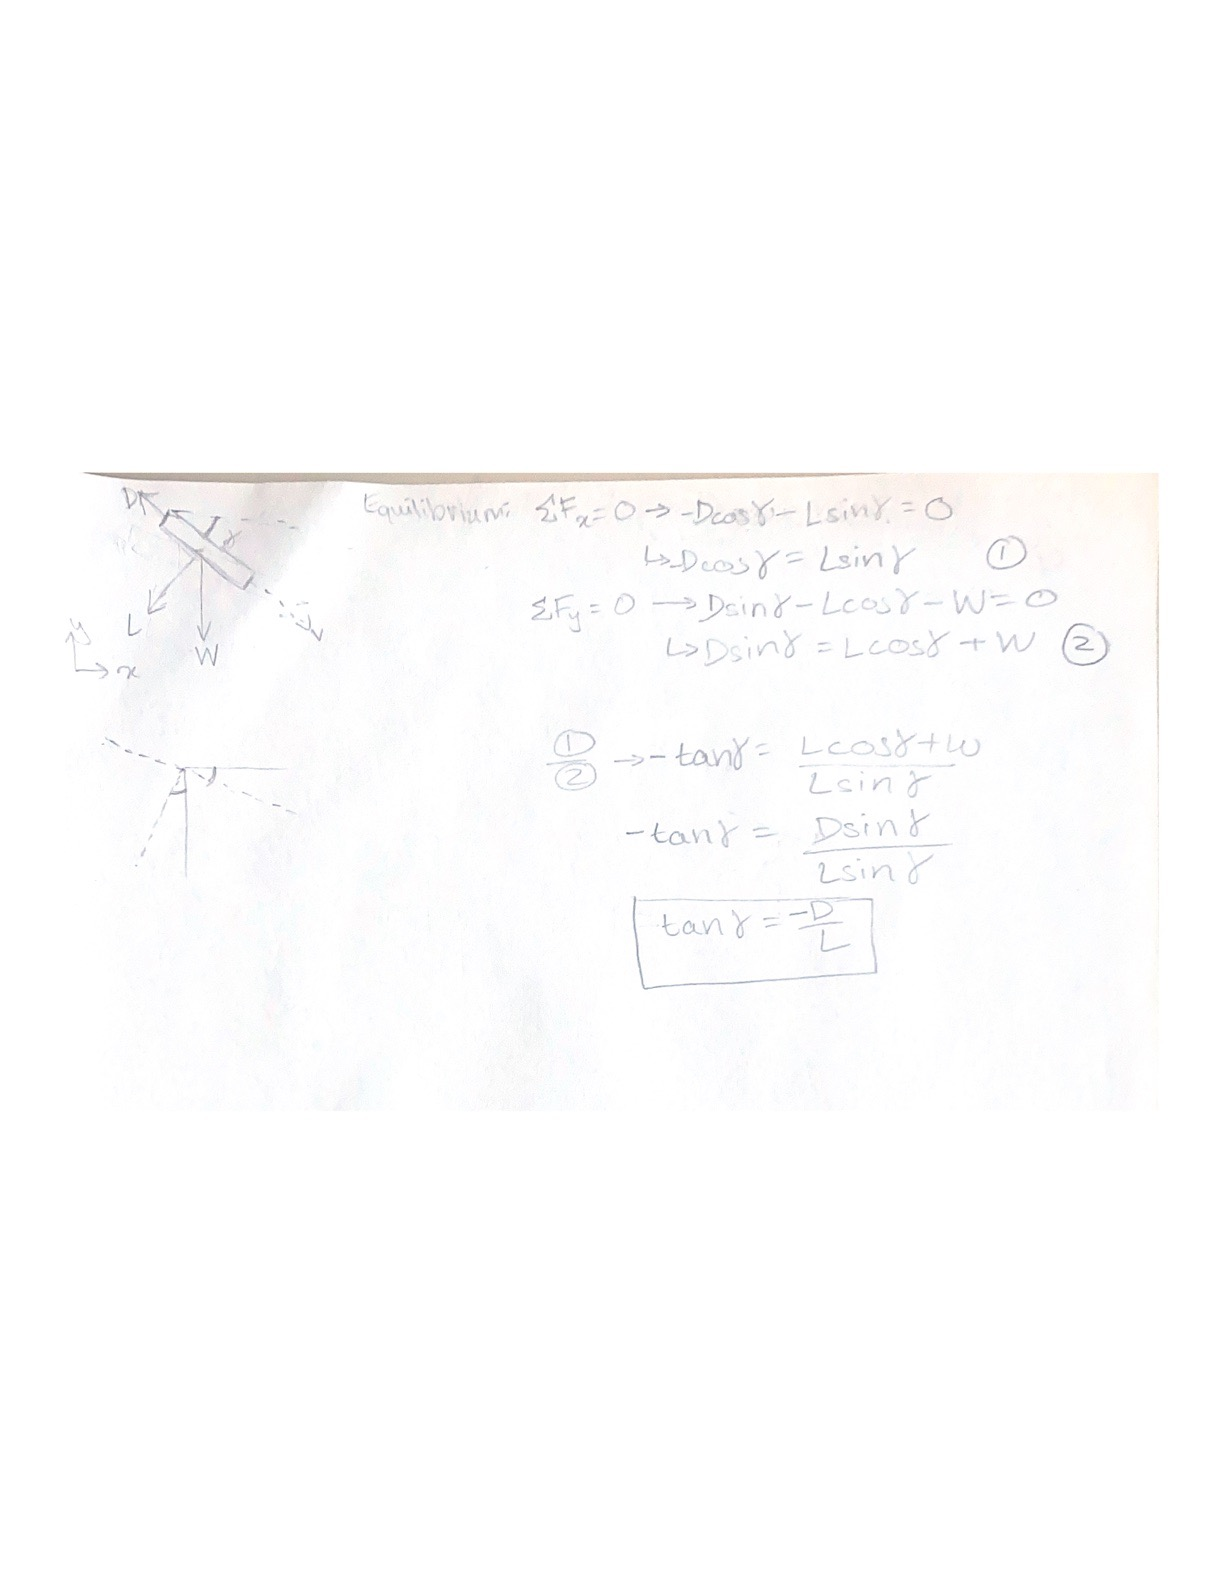 D
γ
L
W
V
y
x
Equilibrium: ΣFₓ = 0 → -Dcosγ - Lsinγ = 0
↳ Dcosγ = Lsinγ ①
ΣFy = 0 → Dsinγ - Lcosγ - W = 0
↳ Dsinγ = Lcosγ + W ②
①/② → - tanγ = (Lcosγ + W)/(Lsinγ)
- tanγ = Dsinγ/Lsinγ
tanγ = -D/L